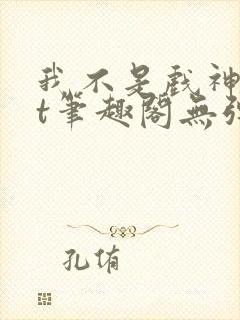 我不是戏神
t筆趣閣無弹
孔侑